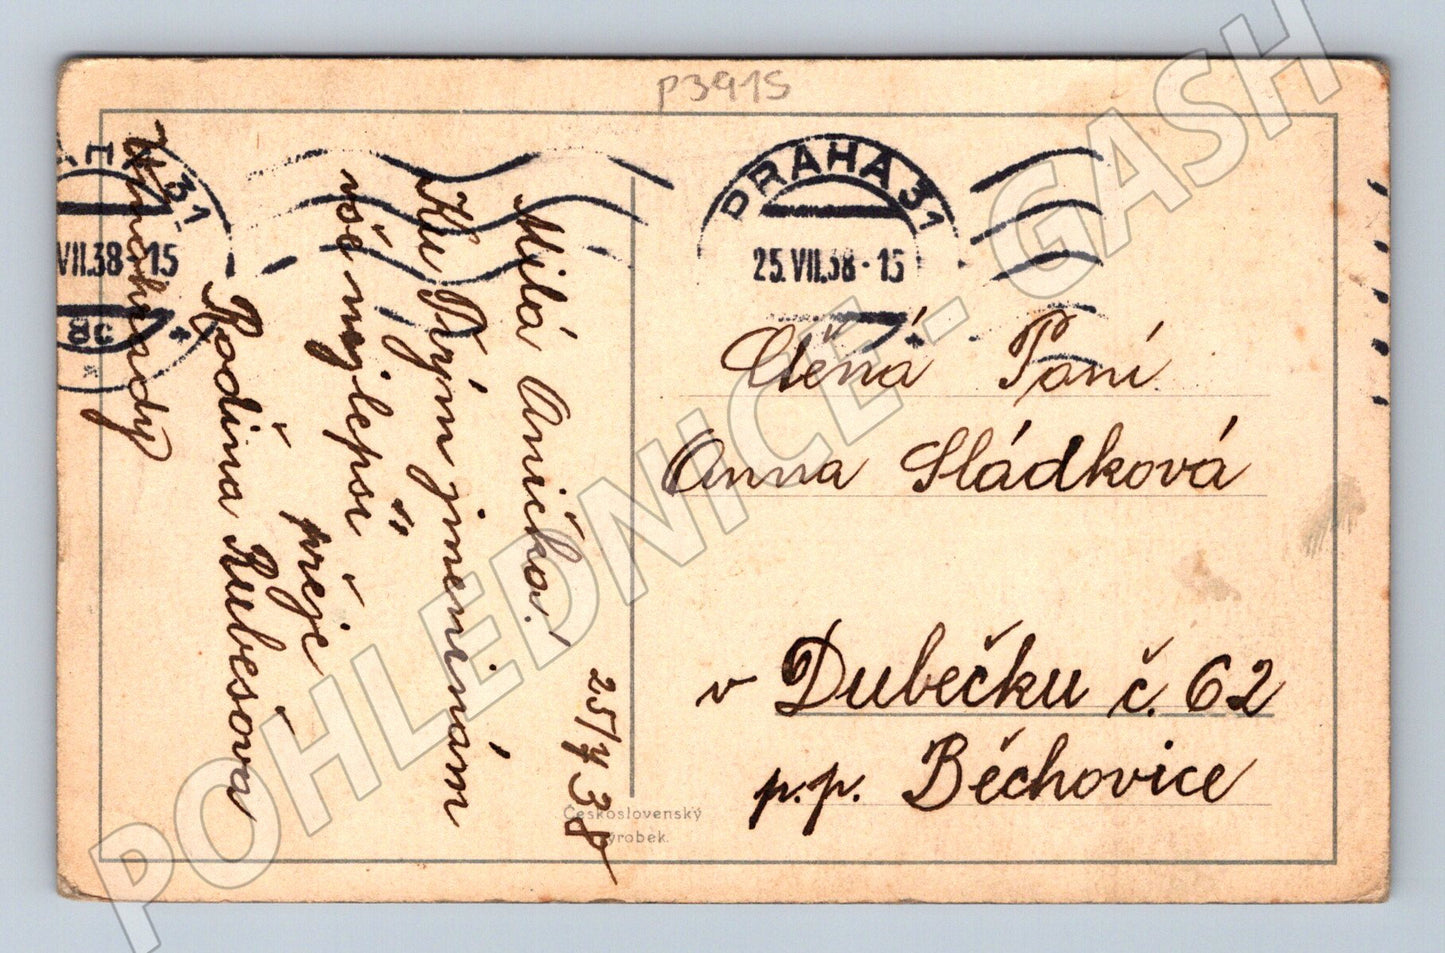 P3915
PRAHA 31
25.VII.38-15
AHA 31
VII.38-15
38
Milá Aničko!
Ku Tvým jmeninám
vše nejlepší
přeje
Rodina Rubešova
Vinohrady
25/7 38
Ctěná Paní
Anna Sládková
v Dubečku č. 62
p.p. Běchovice
Československý
výrobek.
POHLEDNICE - GASH